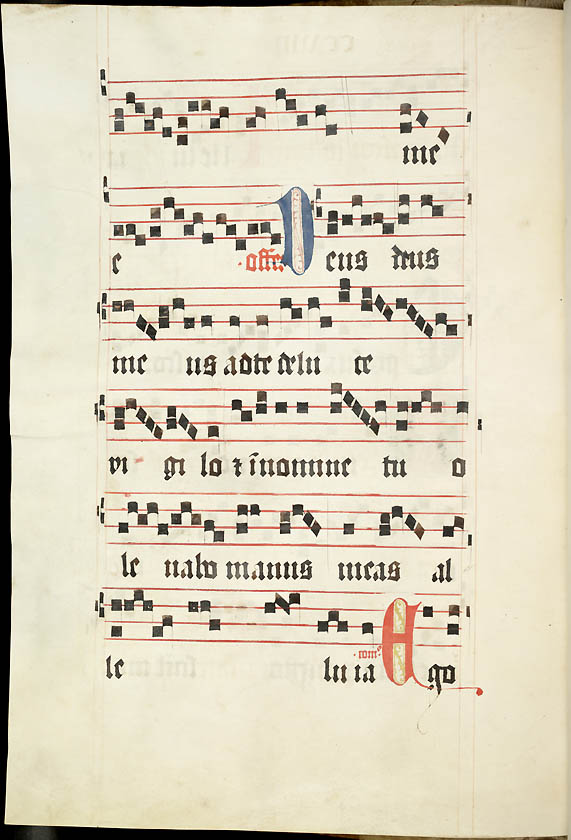 me
e offer Deus deus
me us ad te de lu ce
vi gi lo et i nomine tu o
le uabo manus meas al
le lu ia com Ego